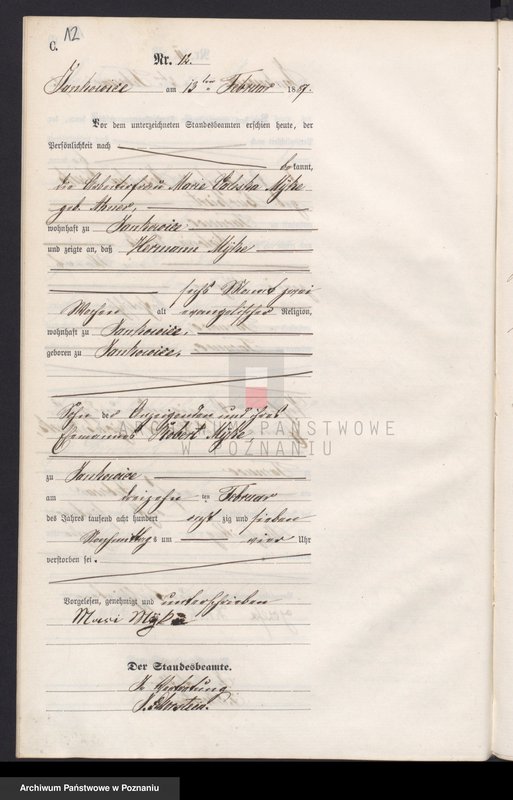 C.
12
Nr. 12.
Jankowice am 13ten Februar 1887.
Vor dem unterzeichneten Standesbeamten erschien heute, der
Persönlichkeit nach
bekannt,
die Arbeiterfrau Marie
geb.
wohnhaft zu Jankowice
und zeigte an, daß Hermann
sechs Monat zwei
Wochen alt evangelischer Religion,
wohnhaft zu Jankowice,
geboren zu Jankowice,
Sohn des Anzeigenden und ihres
Ehemannes Robert
ARCHIWUM PAŃSTWOWE
W POZNANIU
zu Jankowice
am dreizehnten Februar
des Jahres tausend acht hundert achtzig und sieben
Nachmittags um vier Uhr
verstorben sei.
Vorgelesen, genehmigt und unterschrieben
Mari
Der Standesbeamte.
In Vertretung
Archiwum Państwowe w Poznaniu